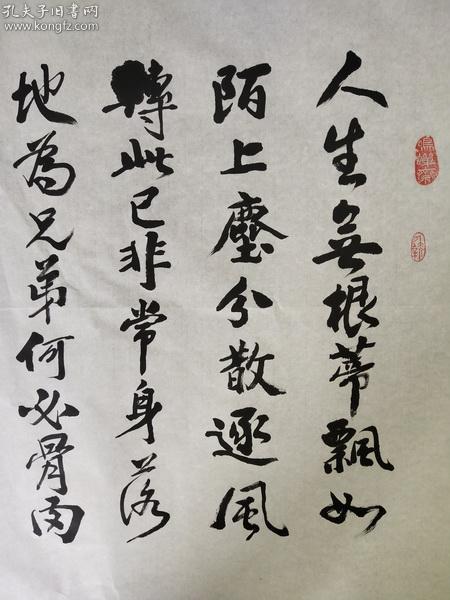 孔夫子旧书网
www.kongfz.com
人生無根蒂飄如
陌上塵分散逐風
轉此已非常身落
地為兄弟何必骨肉